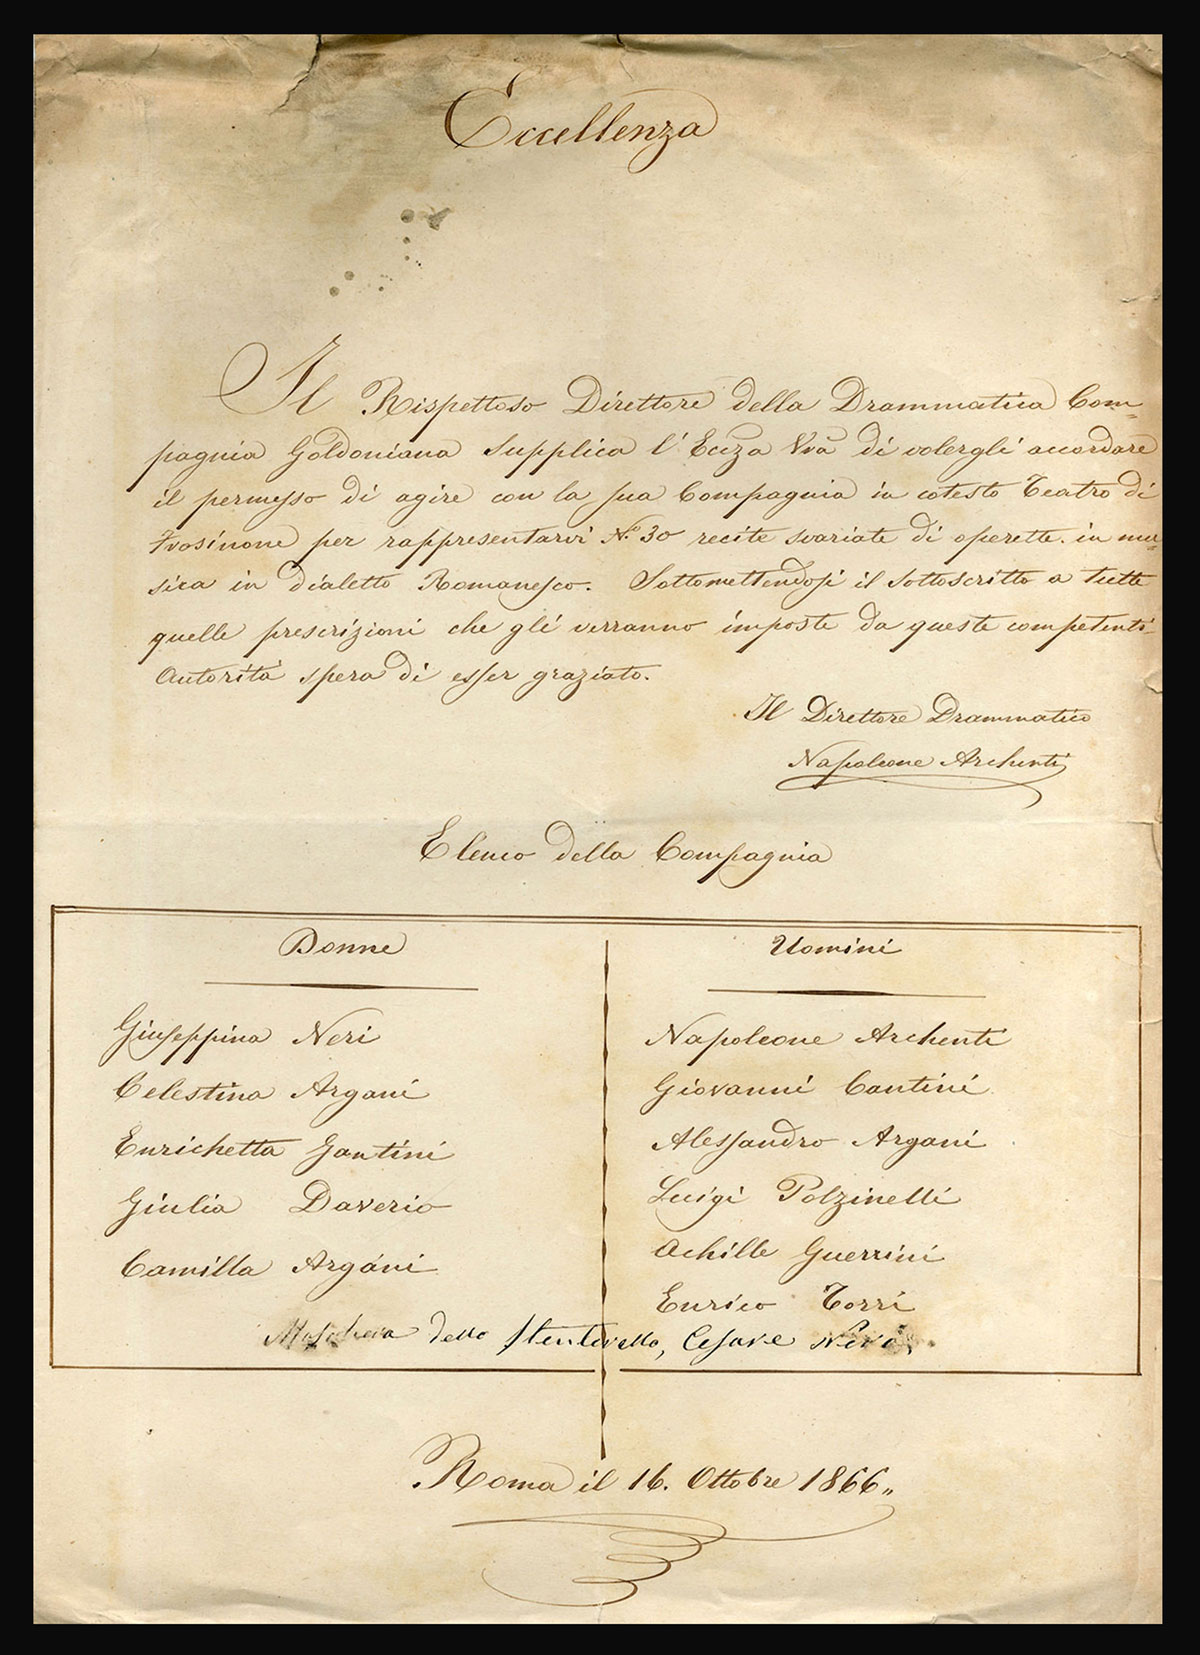 Eccellenza
Il Rispettoso Direttore della Drammatica Com=
pagnia Goldoniana supplica l'Ecc̃za Vr̃a di volergli accordare
il permesso di agire con la sua Compagnia in cotesto Teatro di
Frosinone per rappresentarvi N.° 30 recite svariate di operette in mu=
sica in dialetto Romanesco. Sottomettendosi il sottoscritto a tutte
quelle prescrizioni che gli verranno imposte da queste competenti
Autorità spera di esser graziato.
Il Direttore Drammatico
Napoleone Archenti
Elenco della Compagnia
Donne
Giuseppina Neri
Celestina Argani
Enrichetta Gantini
Giulia Daverio
Camilla Argani
Uomini
Napoleone Archenti
Giovanni Cantini
Alessandro Argani
Luigi Polzinelli
Achille Guerrini
Enrico Torri
Maschera dello Stenterello, Cesare Neri
Roma il 16. Ottobre 1866„